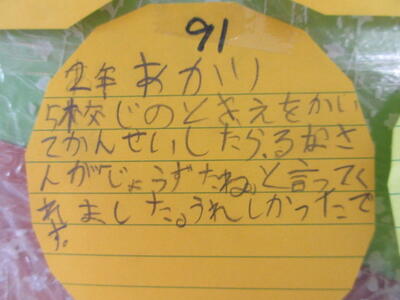 91
2年 あかり
5校じのときえをかい
てかんせいしたら、るなさ
んが「じょうずだね。」と言ってく
れました。うれしかったで
す。